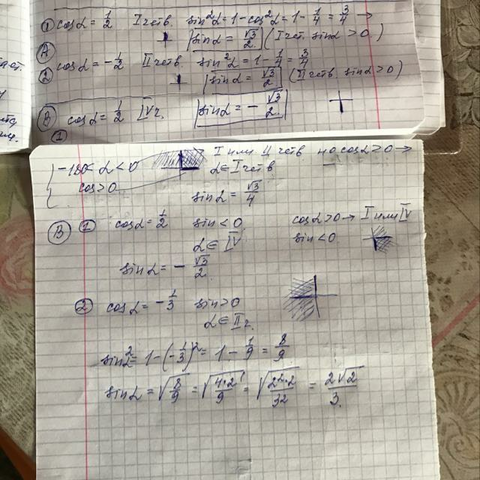 ① cosα = 1/2 I четв. sin²α = 1 - cos²α = 1 - 1/4 = 3/4 →
sinα = √3/2 (I четв. sinα > 0)
А
② cosα = -1/2 II четв sin²α = 1 - 1/4 = 3/4
sinα = √3/2 (II четв sinα > 0)
Б cosα = 1/2 IV ч. sinα = - √3/2
①
-180 < α < 0 I или II четв но cosα > 0 →
cos > 0 α ∈ I четв
sinα = √3/4
В ① cosα = 1/2 sin < 0 cosα > 0 → I или IV
α ∈ IV sin < 0
sinα = - √3/2
② cosα = -1/3 sin > 0
α ∈ II ч.
sin²α = 1 - (-1/3)² = 1 - 1/9 = 8/9
sinα = √8/9 = √4·2/9 = √2²·2/32 = 2√2/3.